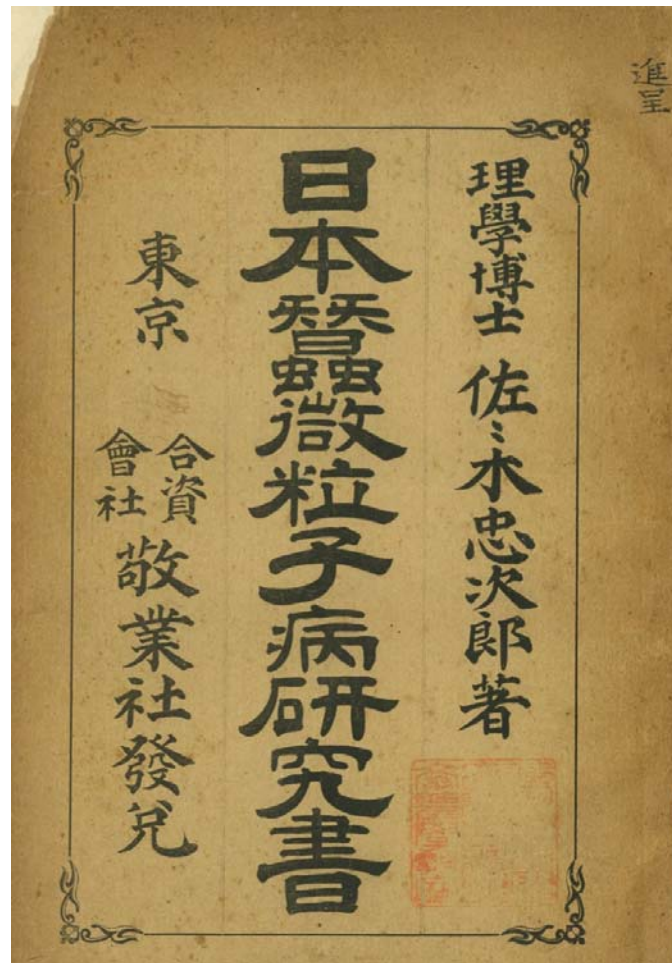 進呈
理學博士 佐々木忠次郎著
日本蠶微粒子病研究書
東京 合資會社 敬業社發兌